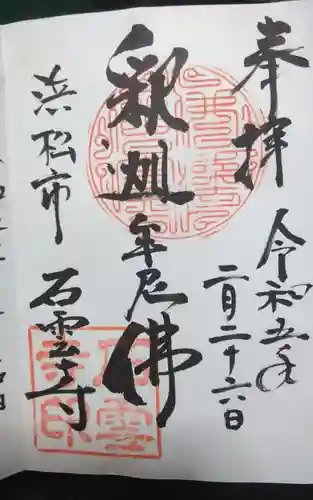 奉拝
令和五年
二月二十六日
釈迦牟尼佛
浜松市
石雲寺
石雲寺印